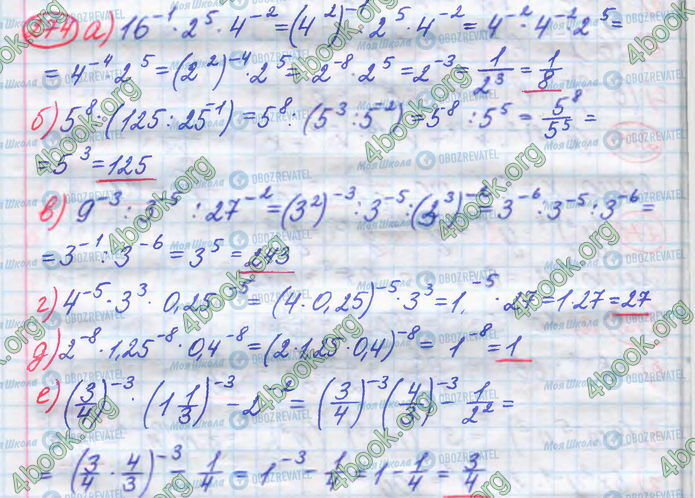 74 а) 16⁻¹ · 2⁵ · 4⁻² = (4²)⁻¹ · 2⁵ · 4⁻² = 4⁻² · 4⁻² · 2⁵ =
= 4⁻⁴ · 2⁵ = (2²)⁻⁴ · 2⁵ = 2⁻⁸ · 2⁵ = 2⁻³ = 1/2³ = 1/8
б) 5⁸ : (125 : 25⁻¹) = 5⁸ : (5³ : 5⁻²) = 5⁸ : 5⁵ = 5⁸/5⁵ =
= 5³ = 125
в) 9⁻³ : 3⁻⁵ : 27⁻² = (3²)⁻³ : 3⁻⁵ : (3³)⁻² = 3⁻⁶ : 3⁻⁵ : 3⁻⁶ =
= 3⁻¹ : 3⁻⁶ = 3⁵ = 243
г) 4⁻⁵ · 3³ · 0,25⁻⁵ = (4 · 0,25)⁻⁵ · 3³ = 1⁻⁵ · 27 = 1 · 27 = 27
д) 2⁻⁸ · 1,25⁻⁸ · 0,4⁻⁸ = (2 · 1,25 · 0,4)⁻⁸ = 1⁻⁸ = 1
е) (3/4)⁻³ · (1 1/3)⁻³ - 2⁻² = (3/4)⁻³ (4/3)⁻³ - 1/2² =
= (3/4 · 4/3)⁻³ - 1/4 = 1⁻³ - 1/4 = 1 - 1/4 = 3/4
4book.org
Моя Школа OBOZREVATEL